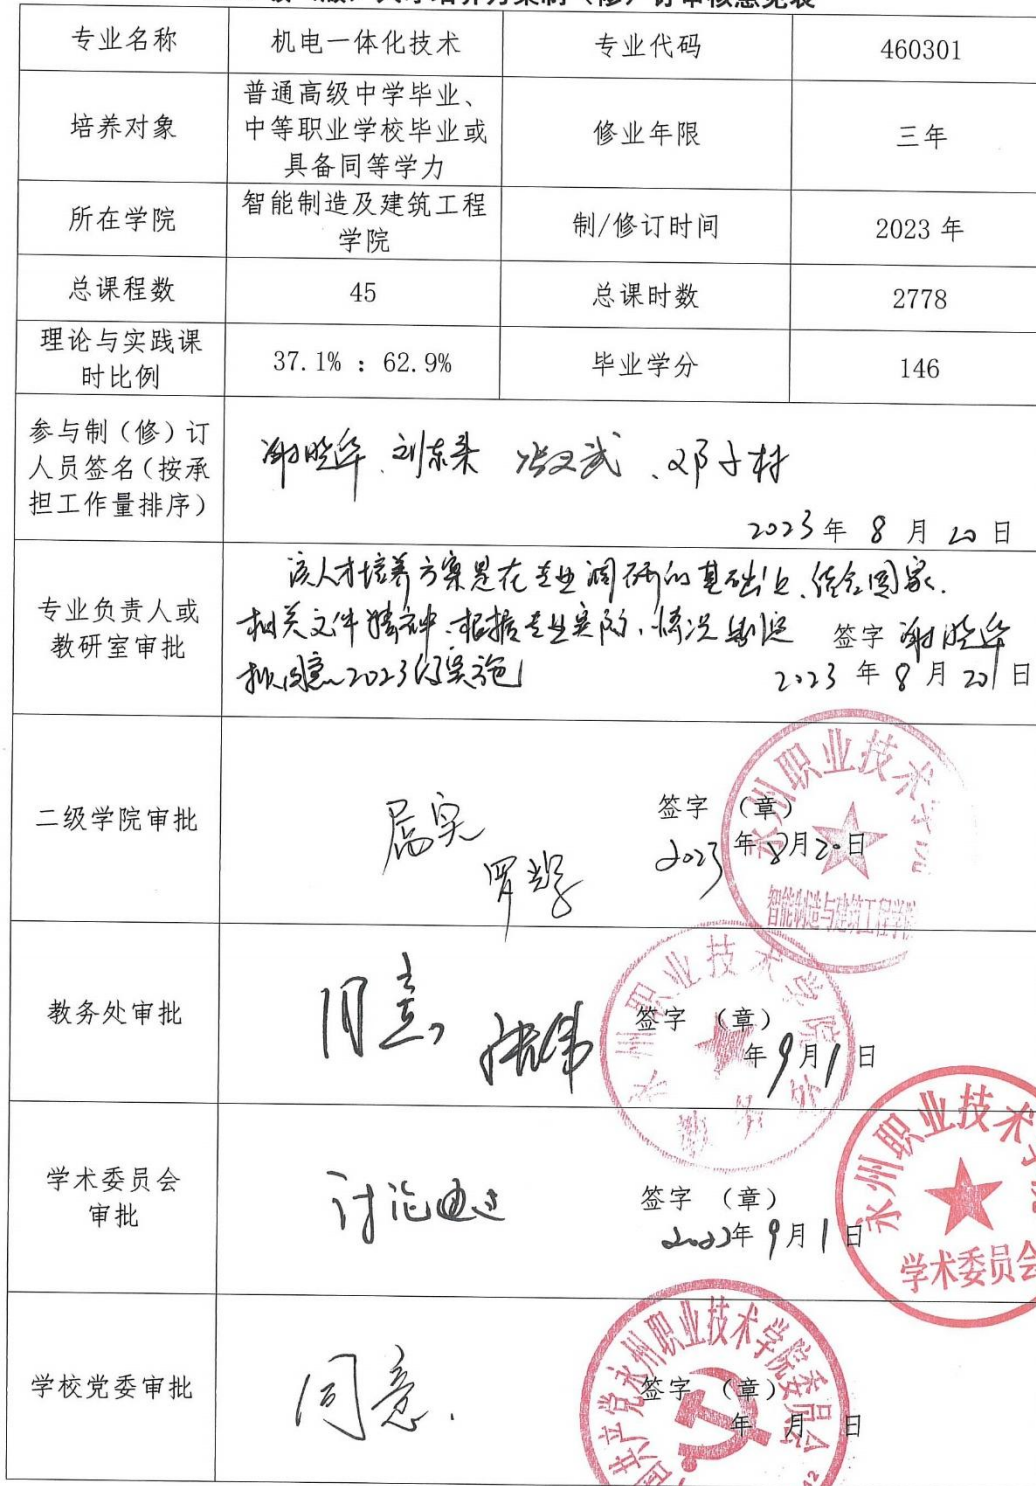 人才培养方案制（修）订审核意见表
专业名称 机电一体化技术 专业代码 460301
培养对象 普通高级中学毕业、
中等职业学校毕业或
具备同等学力 修业年限 三年
所在学院 智能制造及建筑工程
学院 制/修订时间 2023 年
总课程数 45 总课时数 2778
理论与实践课
时比例 37.1% : 62.9% 毕业学分 146
参与制（修）订
人员签名（按承
担工作量排序）
谢晓华、刘东
2023年 8 月 20 日
专业负责人或
教研室审批
该人才培养方案是在专业调研的基础上、结合国家
相关文件精神、根据专业实际情况制定
拟同意2023级实施
签字 谢晓华
2023 年 8 月 20 日
二级学院审批
签字 （章）
2023年8月20日
永州职业技术学院
智能制造与建筑工程学院
教务处审批
同意
签字 （章）
年9月1日
永州职业技术学院
教务处
学术委员会
审批
讨论通过
签字 （章）
年9月1日
永州职业技术学院
学术委员会
学校党委审批
同意.
签字 （章）
年 月 日
国共产党永州职业技术学院委员会